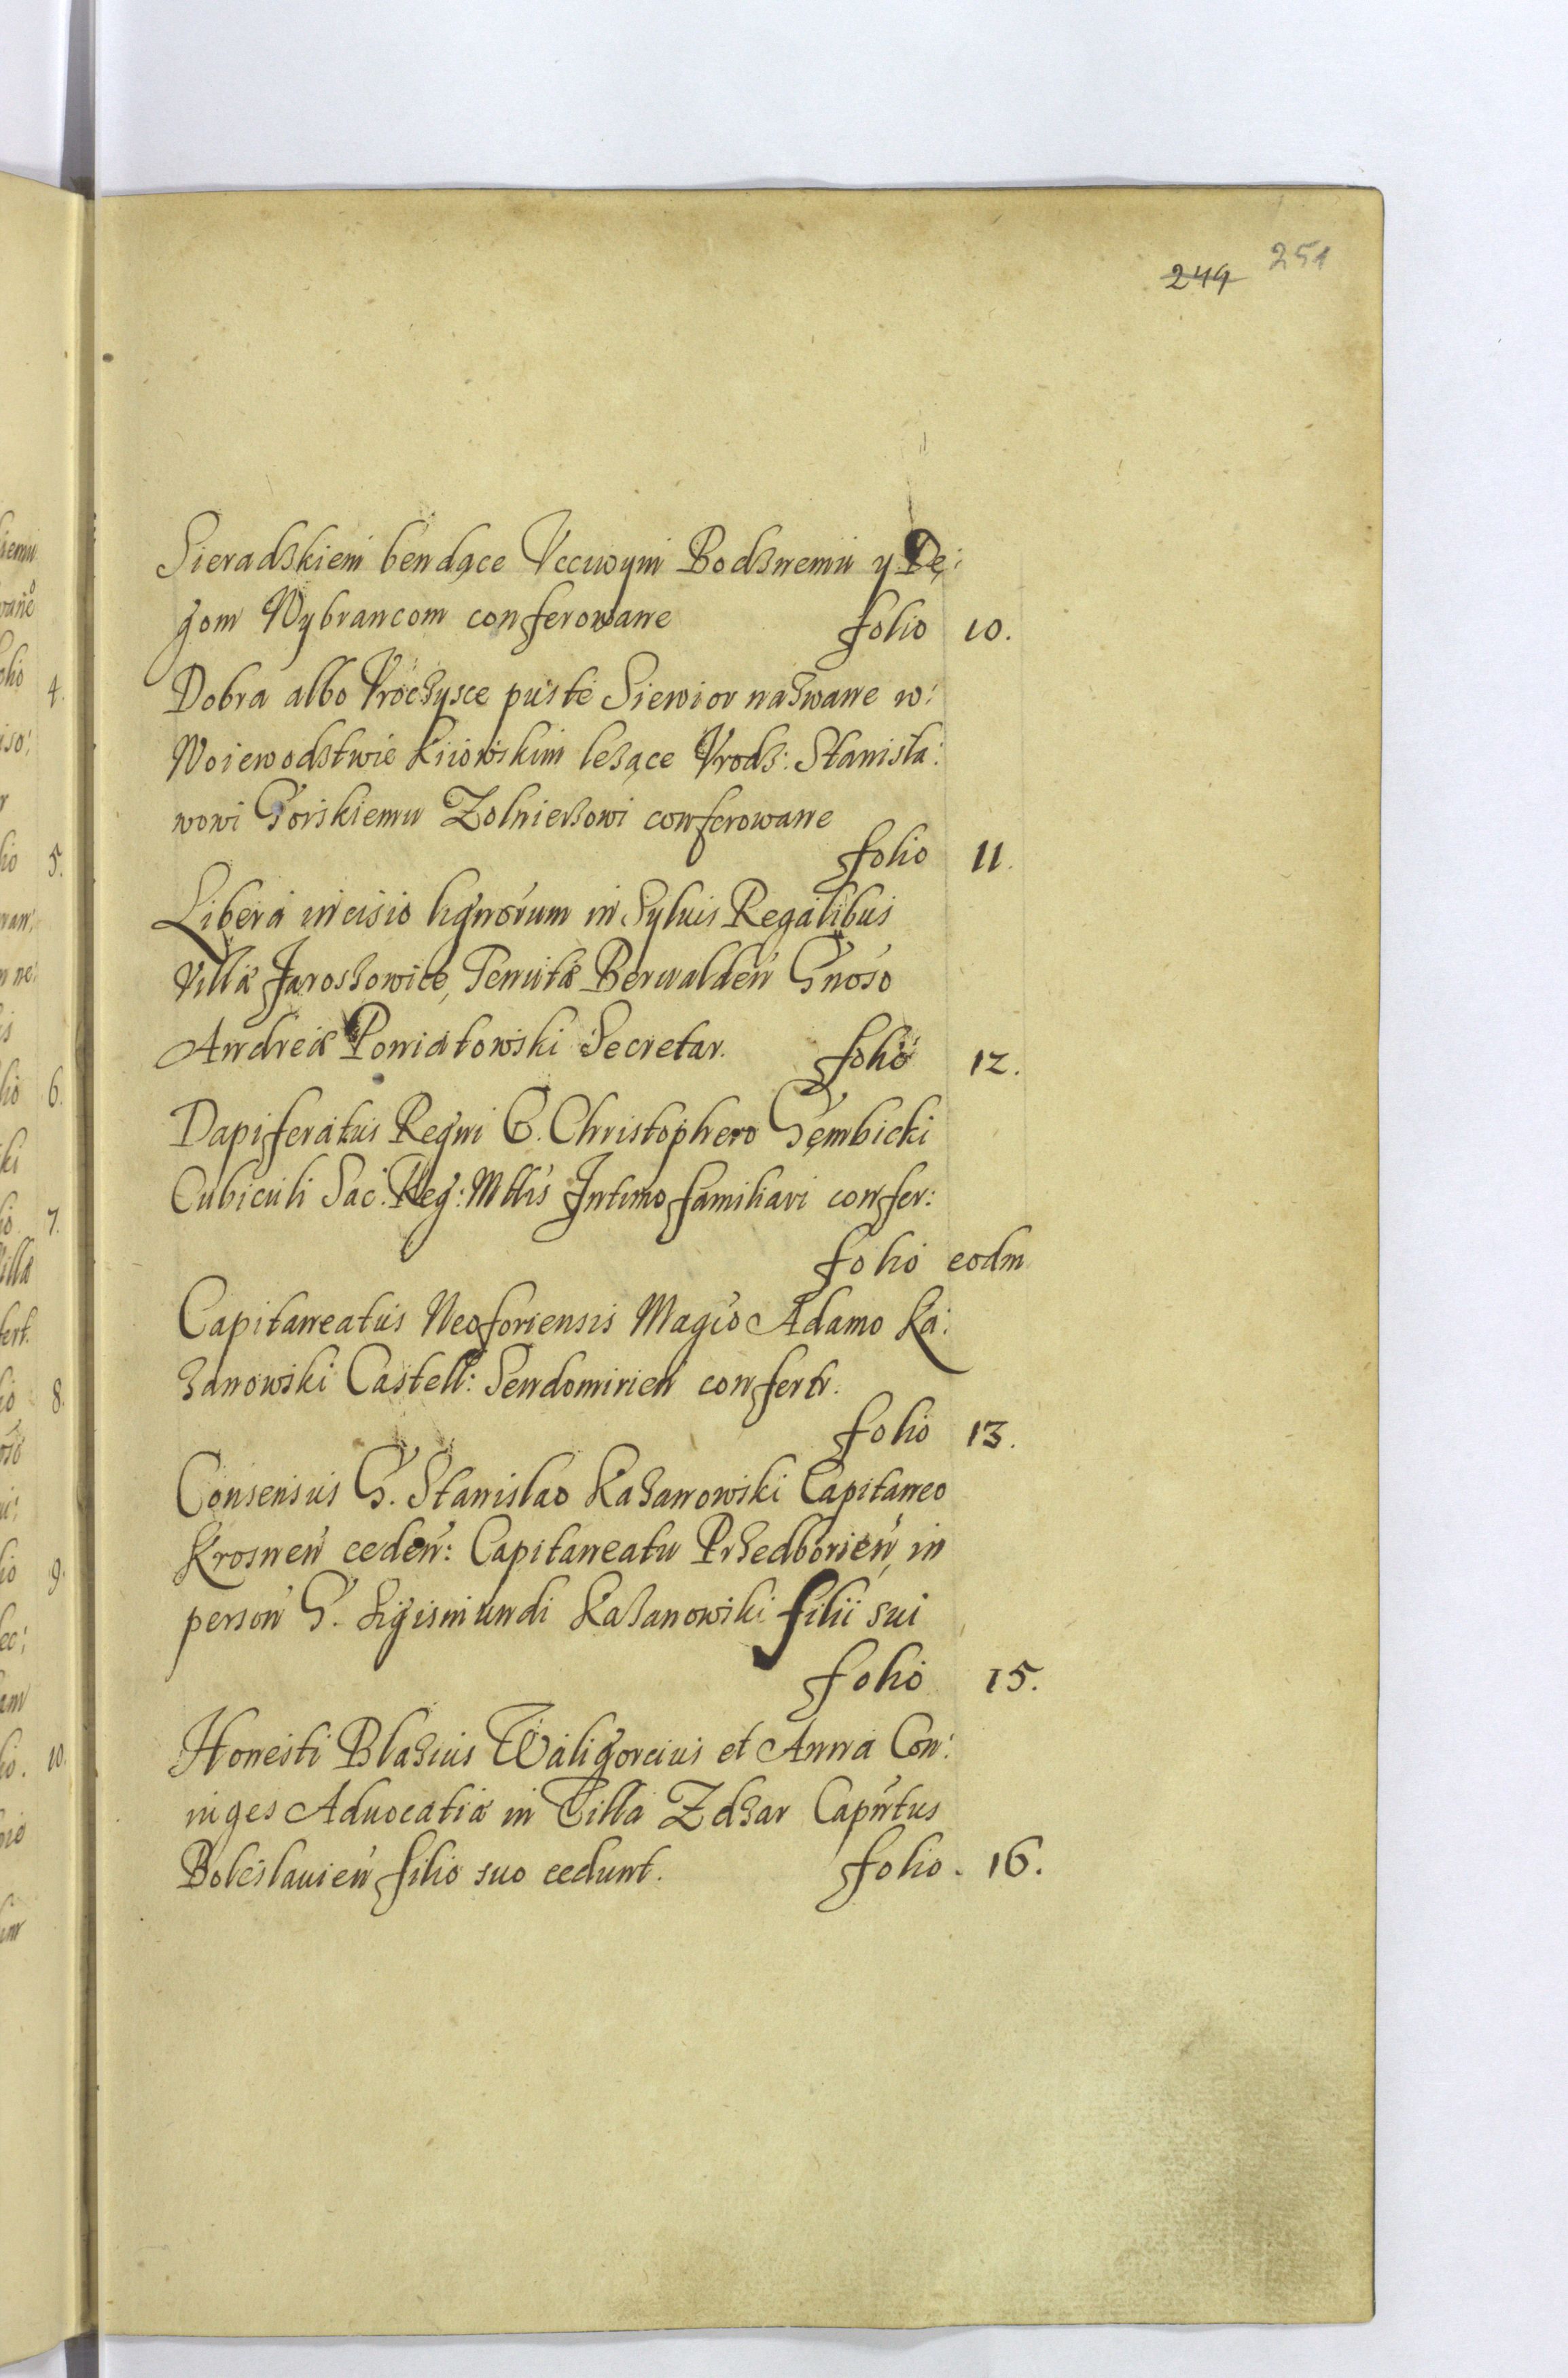 249 251
Sieradzkiem bendące Vcciwym Bodznemu y Dę:
gom Wybrancom conferowane folio 10.
Dobra albo Vroczysce puste Siewior nazwane w:
Woiewodztwie Kiiowskim lezące Vrodz: Stanisla:
wowi Gorskiemu Zolnierzowi conferowane
folio 11.
Libera incisio lignorum in Syluis Regalibus
Villæ Jaroszowice, Tenutæ Berwalden Gnoso
Andreæ Poniatowski Secretar. folio 12.
Dapiferatus Regni G. Christophero Gembicki
Cubiculi Sac: Reg: Mttis Intimo familiari confer:
folio eodm
Capitaneatus Neoforiensis Magco Adamo Ka:
zanowski Castell: Sendomirien confertr.
folio 13.
Consensus G. Stanislao Kazanowski Capitaneo
Krosnen ceden: Capitaneatu Przedborien, in
person G. Sigismundi Kazanowski filii sui
folio 15.
Honesti Blazius Waligorcius et Anna Con:
iuges Aduocatiæ in Villa Zdzar Capntus
Boleslauien filio suo cedunt. folio. 16.